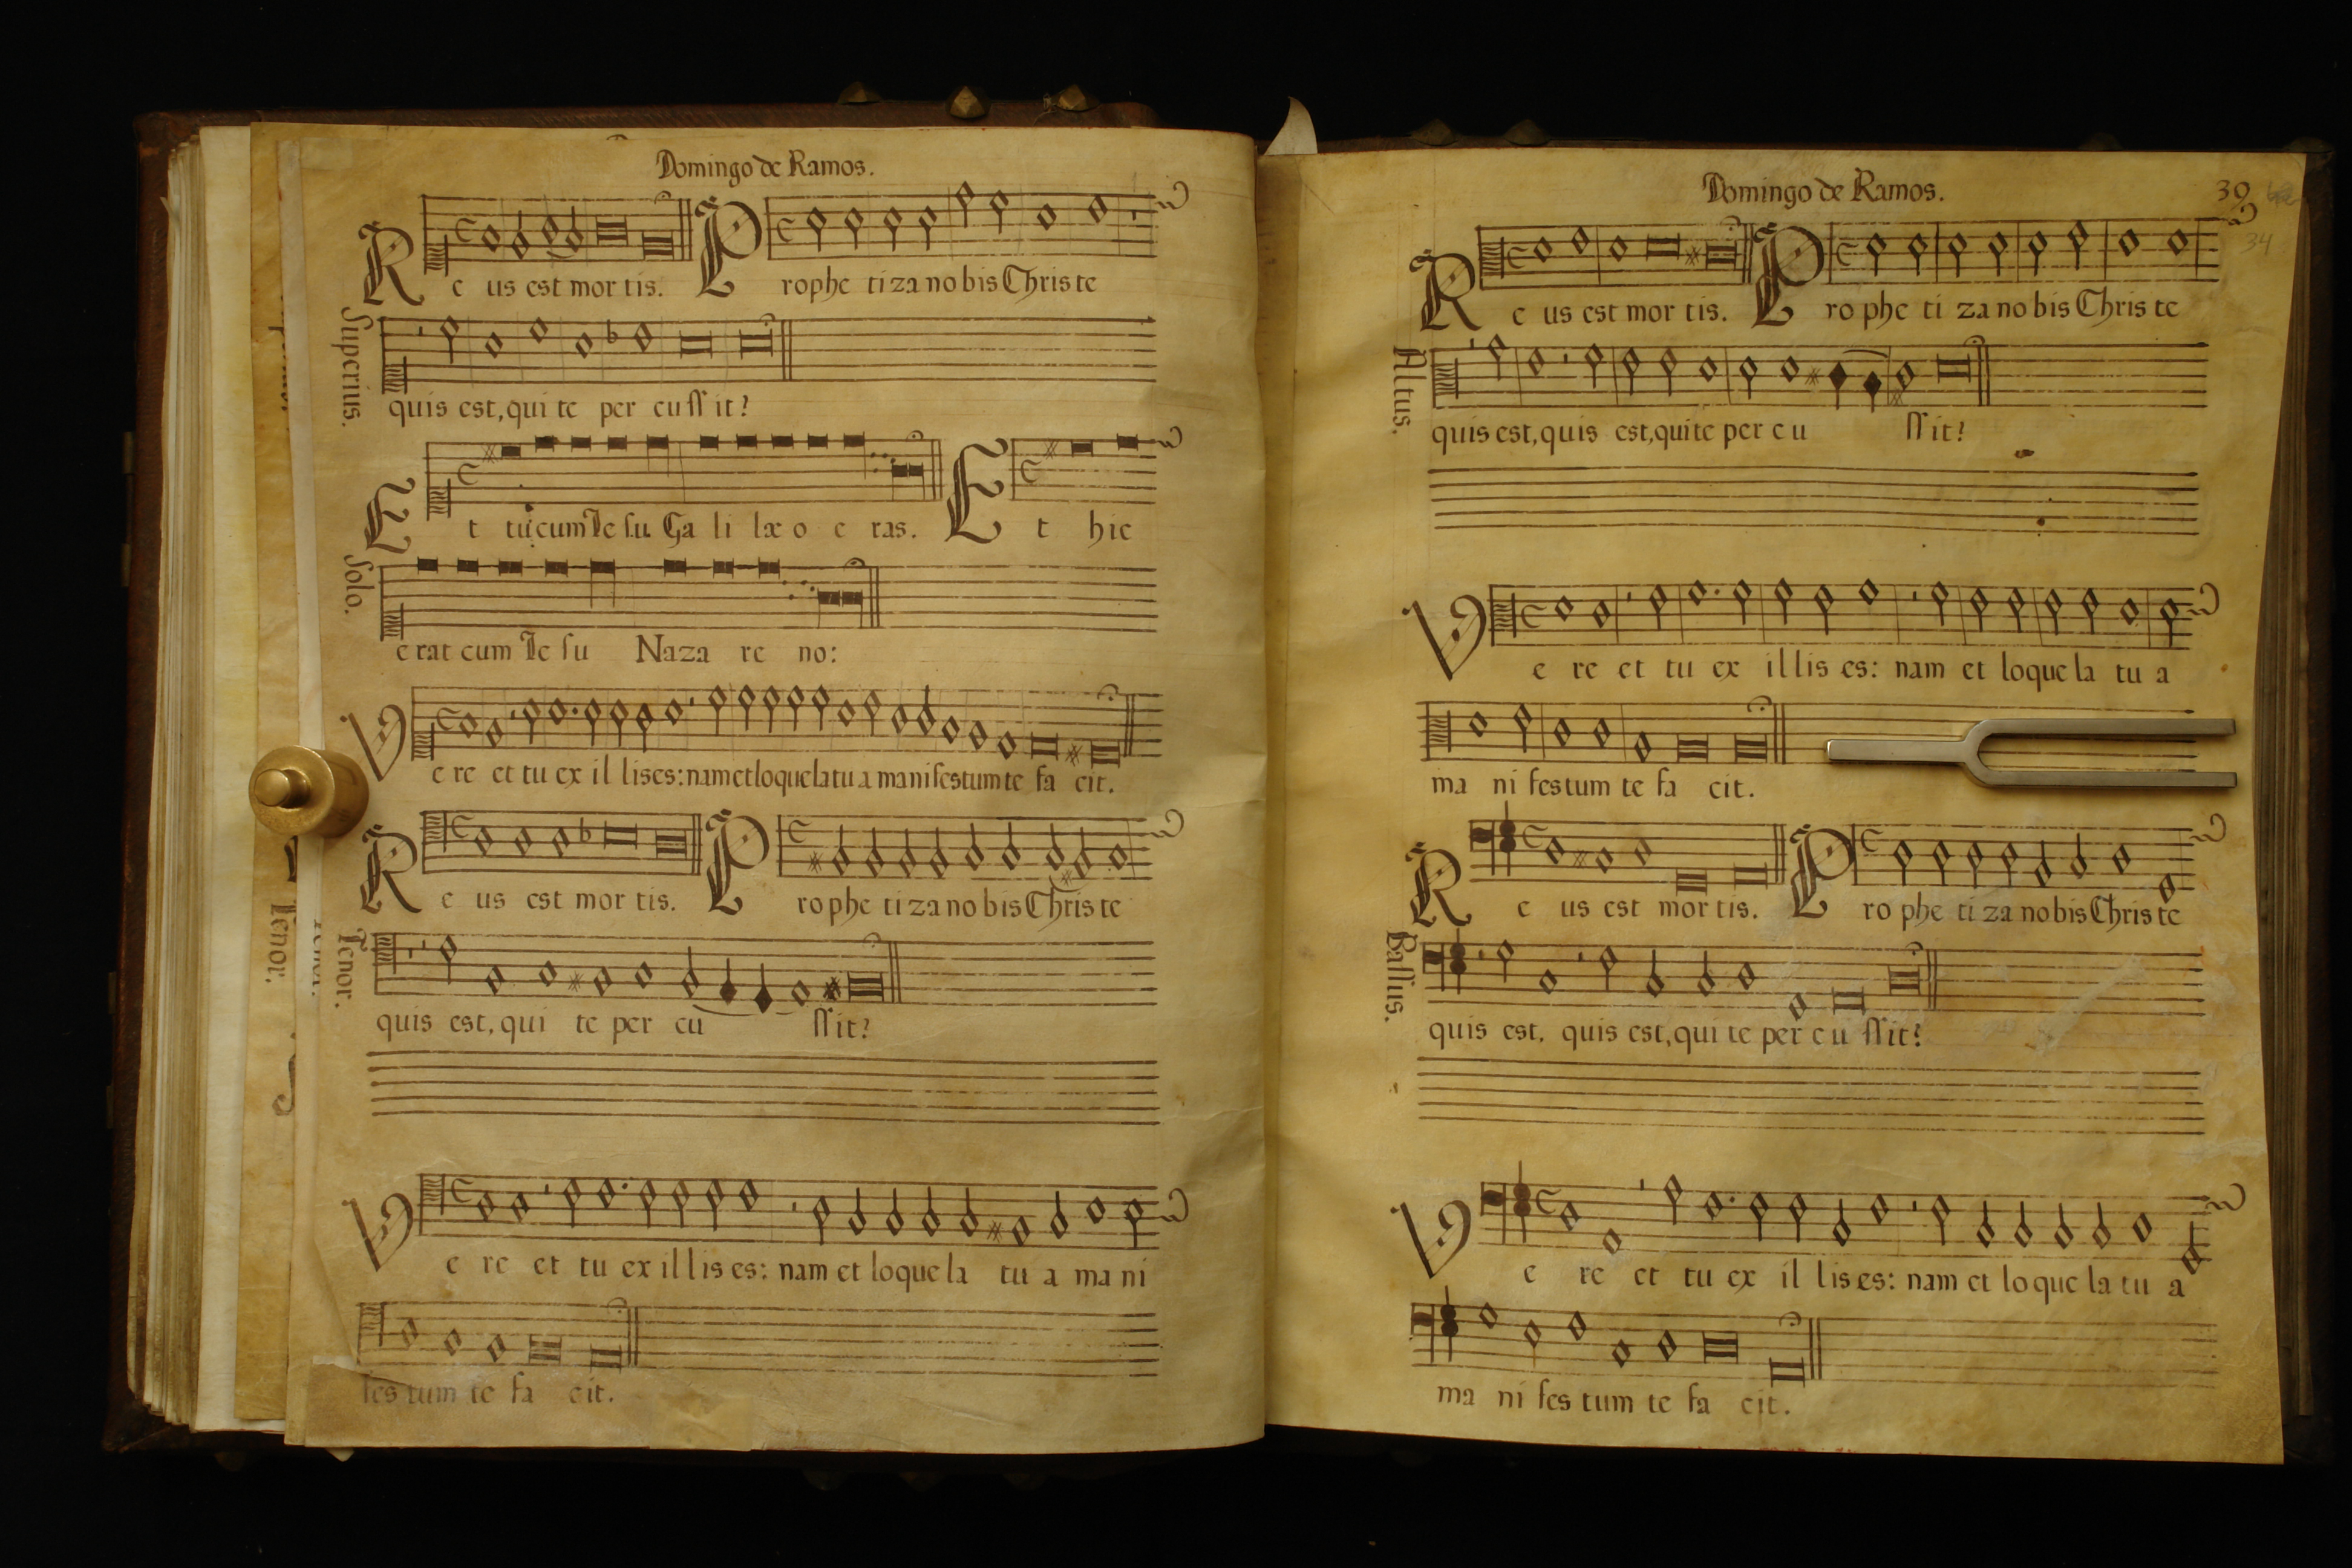 Domingo de Ramos.
Re us est mor tis. Prophe ti za no bis Chris te
Superius.
quis est, qui te per cu ssit?
Et tu cum Ie su Ga li læ o e ras. Et hic
Solo.
e rat cum Ie su Naza re no:
Ve re et tu ex il lis es: nam et loquela tu a manifestum te fa cit.
Re us est mor tis. Prophe ti za no bis Chris te
Tenor.
quis est, qui te per cu ssit?
Ve re et tu ex il lis es: nam et loque la tu a ma ni
fes tum te fa cit.
Tenor.
Domingo de Ramos.
39
34
Re us est mor tis. Pro phe ti za no bis Chris te
Altus.
quis est, quis est, qui te per cu ssit?
Ve re et tu ex il lis es: nam et loque la tu a
ma ni festum te fa cit.
Re us est mor tis. Pro phe ti za no bis Chris te
Bassus.
quis est. quis est, qui te per cu ssit?
Ve re et tu ex il lis es: nam et lo que la tu a
ma ni fes tum te fa cit.